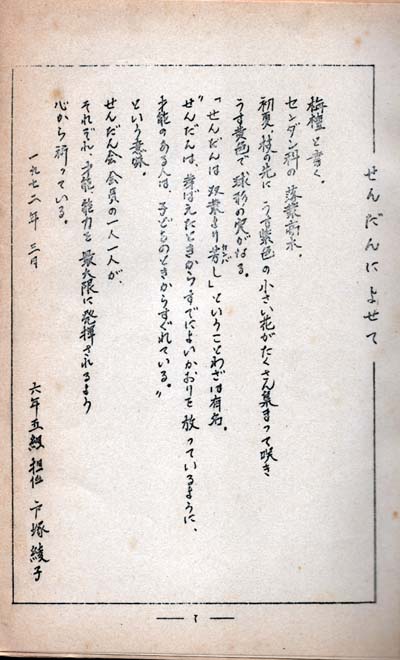 せんだんによせて
栴檀と書く。
センダン科の落葉高木。
初夏、枝の先にうす紫色の小さい花がたくさん集まって咲き
うす黄色で球形の実がなる。
「せんだんは双葉より芳し」ということわざは有名。
かんば
"せんだんは、芽ばえたときからすでによいかおりを放っているように、
才能のある人は、子どものときからすぐれている。"
という意味。
せんだん会会員の一人一人が、
それぞれ、才能、能力を最大限に発揮されるよう
心から祈っている。
一九七二年 三月
六年五組担任 戸塚綾子